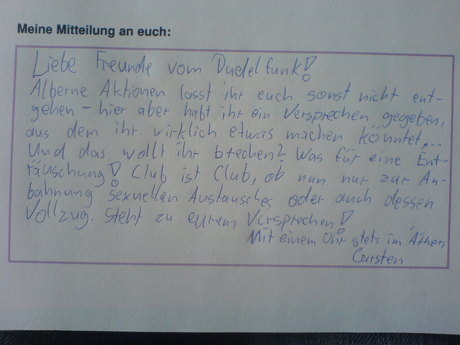 Meine Mitteilung an euch:
Liebe Freunde vom Dudelfunk!
Alberne Aktionen lasst ihr euch sonst nicht ent-
gehen - hier aber habt ihr ein Versprechen gegeben,
aus dem ihr wirklich etwas machen könntet...
Und das wollt ihr brechen? Was für eine Ent-
täuschung! Club ist Club, ob nun nur zur An-
bahnung sexuellen Austausches oder auch dessen
Vollzug. Steht zu eurem Versprechen!
Mit einem Ohr stets im Äther,
Carsten